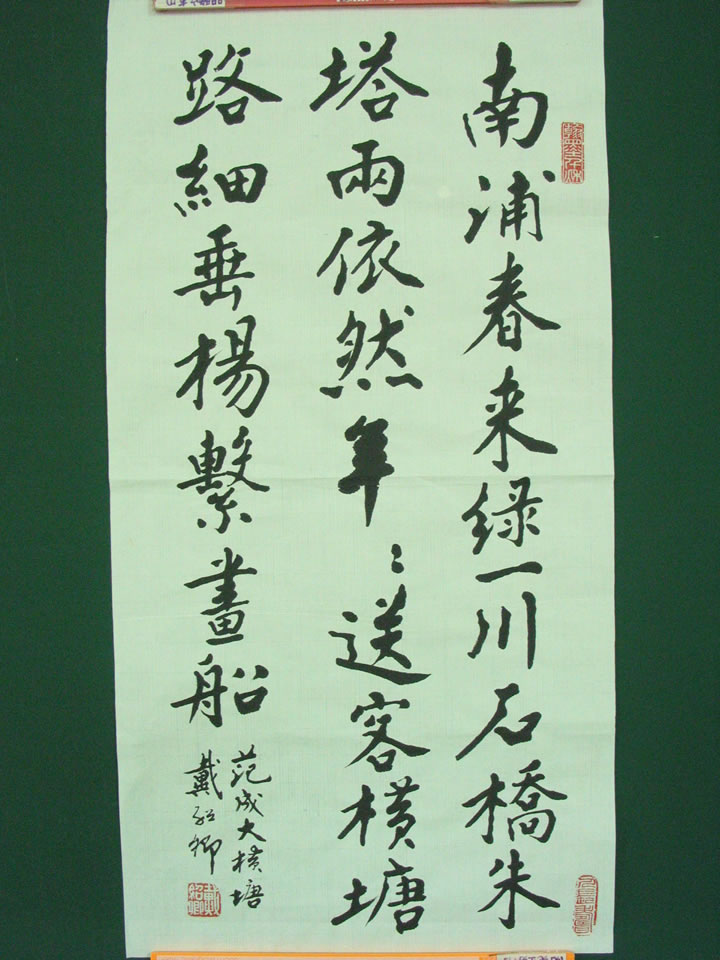 南浦春来緑一川石橋朱
塔兩依然年〻送客横塘
路細垂楊繫畫船
范成大横塘
戴紹卿